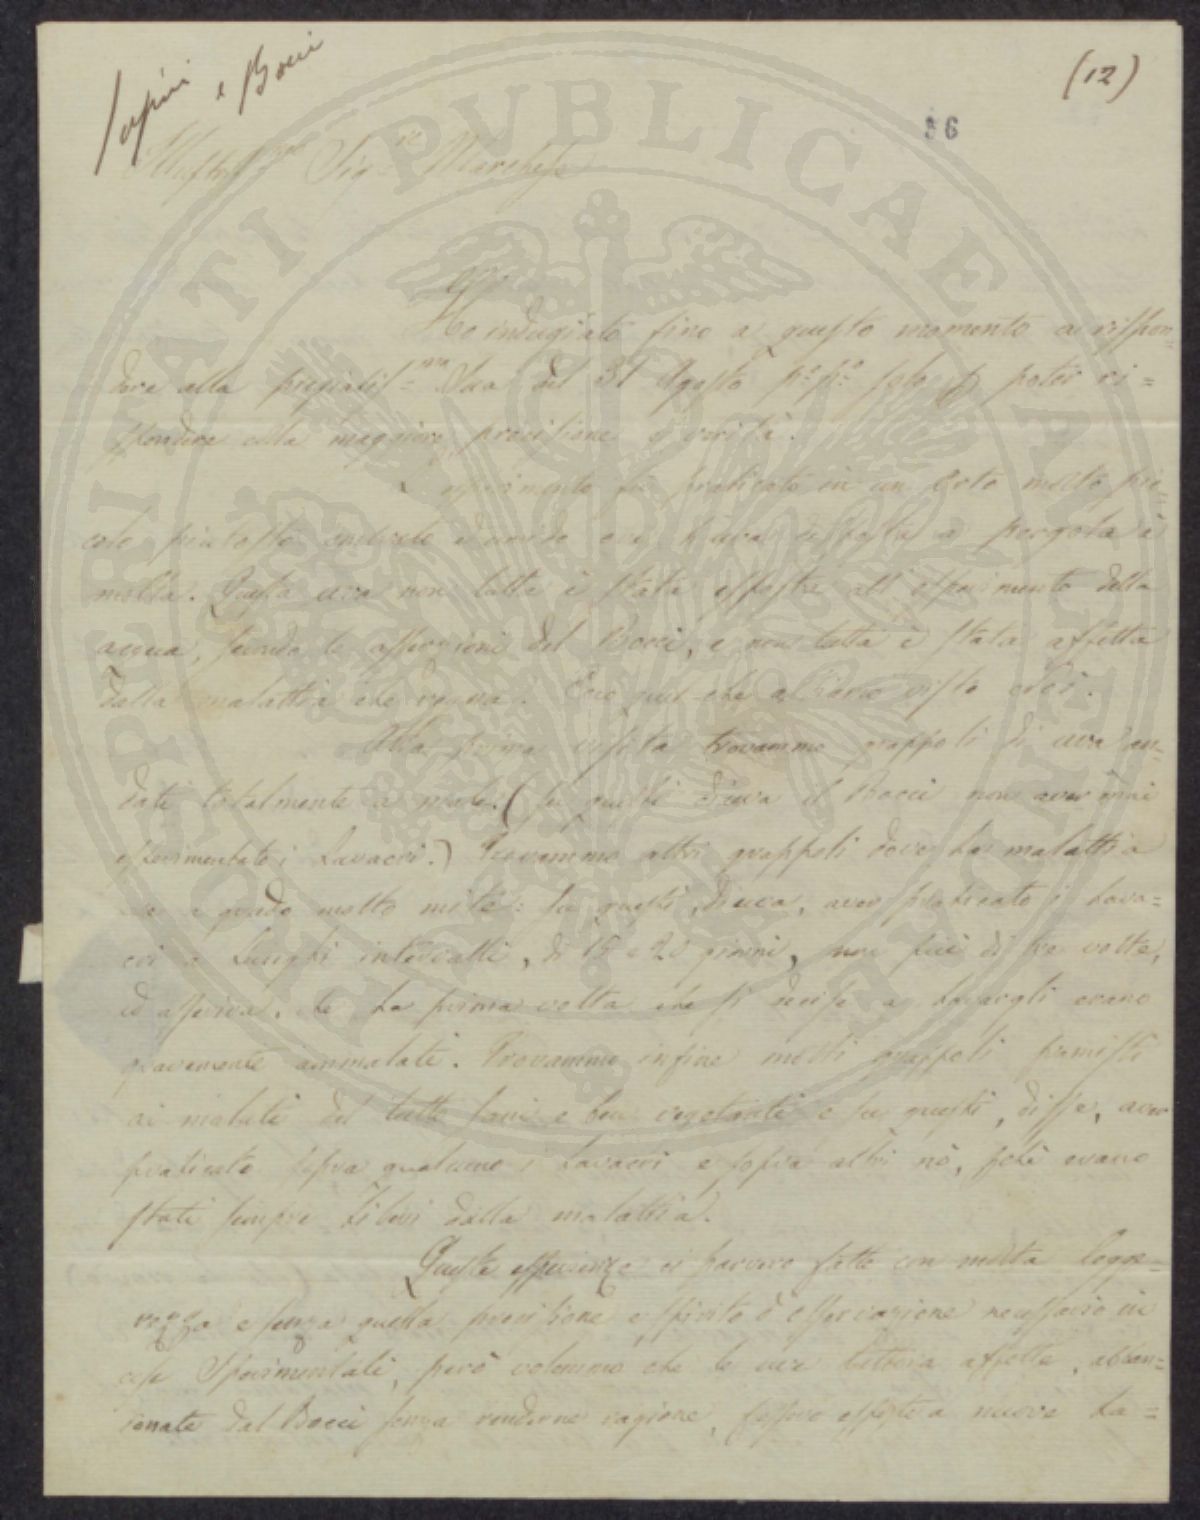 e Bocci
(12)
36
Illustr.mo Sig.re Marchese
Ho indugiato fino a questo momento a rispon=
dere alla pregiatis.ma Sua del 31 Agosto p.o p.o poter ri=
spondere colla maggiore precisione e verità.
esperimento fu praticato in un Orto molto pic=
colo piuttosto umido ove l'uva a pergola è
molta. Questa uva non tutta è stata esposta all'esperimento della
acqua, secondo le asserzioni del Bocci, e non tutta è stata affetta
dalla malattia che regna. Ecco quel che abbiamo visto
Alla prima visita trovammo grappoli di uva an=
dati totalmente a male. (Su questi diceva il Bocci non aver mai
esperimentato i Lavacri.) Trovammo altri grappoli dove la malattia
era a grado molto mite: su questi, diceva, aver praticato i Lava=
cri a lunghi intervalli, di 15 o 20 giorni, non più di tre volte,
ed asseriva, che la prima volta che si decise a lavargli erano
gravemente ammalati. Trovammo infine molti grappoli framisti
ai malati del tutto sani e ben vegetanti e su questi, disse, aver
praticato sopra qualcuno i Lavacri e sopra altri nò, perchè erano
stati sempre liberi dalla malattia.
Queste esperienze ci parvero fatte con molta legge=
rezza e senza quella precisione e spirito d'osservazione necessario in
cose Sperimentali, però volemmo che le uve tuttora affette, abban=
donate dal Bocci senza renderne ragione, fossero esposte a nuovi La=